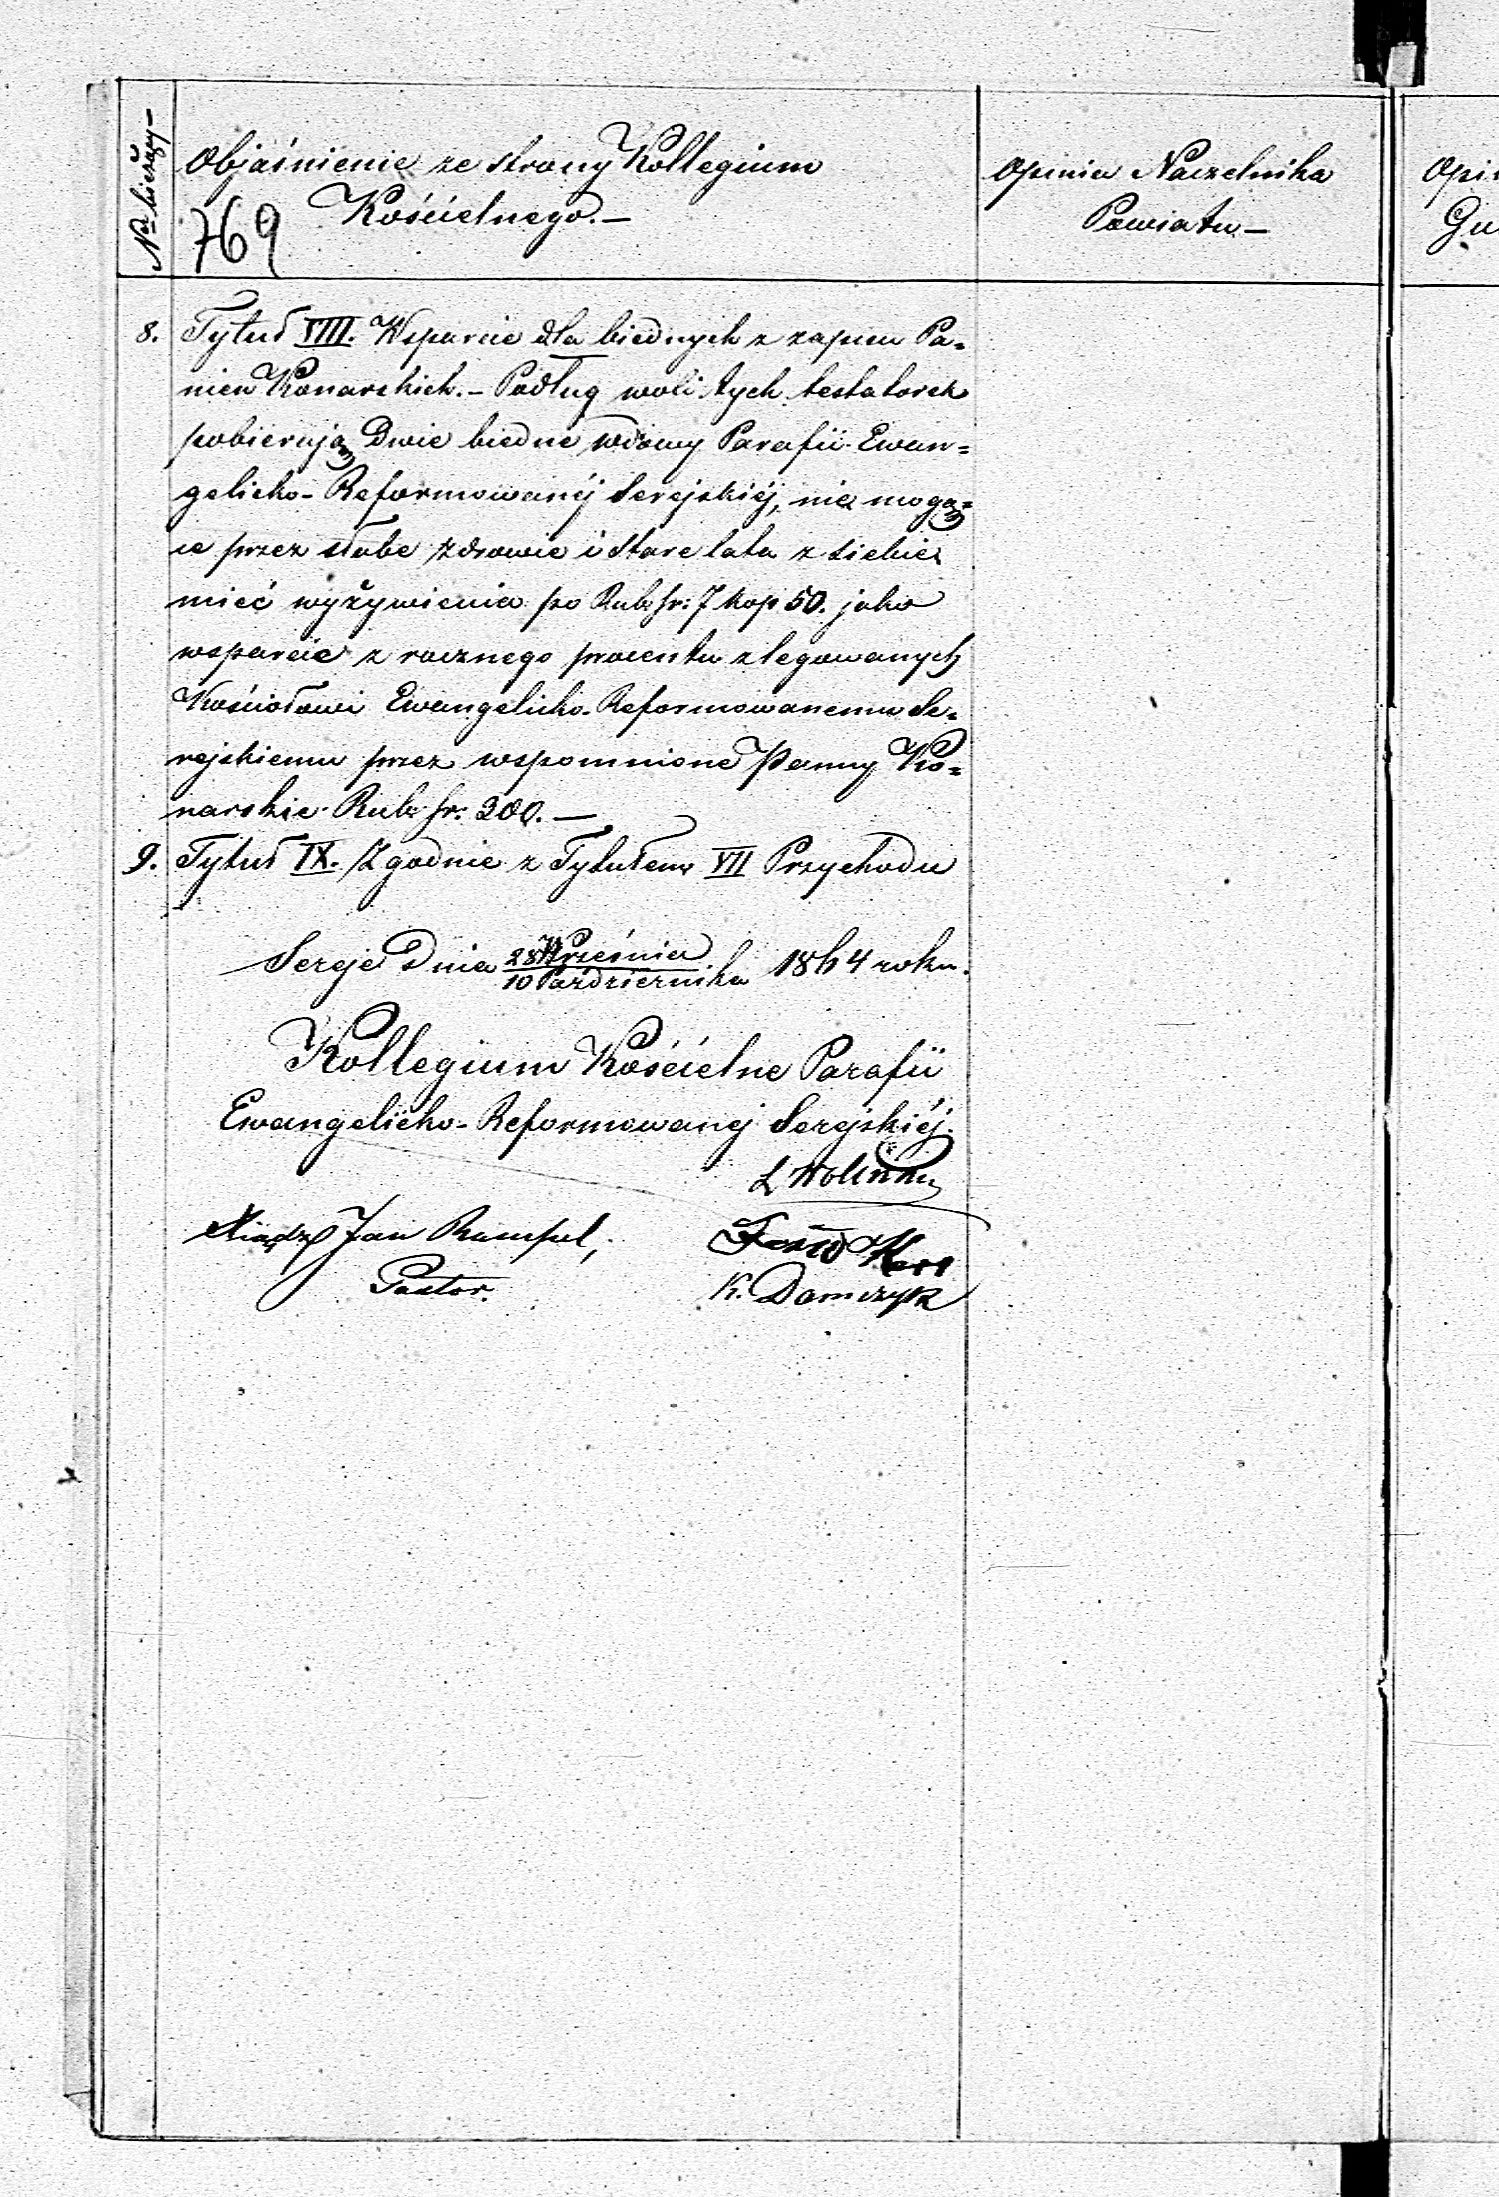 Nr bieżący
Objaśnienie ze strony Kollegium
Kościelnego.—
769
Opinia Naczelnika
Powiatu—
Opi
Gu
8. Tytuł VIII. Wsparcie dla biednych z zapisu Pa=
nien Konarskich.— Podług woli tych testatorek
pobierają Dwie biedne wdowy Parafii Ewan=
gelicko-Reformowanéj Serejskiéj, nie mogą=
ce przez słabe zdrowie i stare lata z siebie
mieć wyżywienia po Rub: sr: 7 kop 50. jako
wsparcie z rocznego procentu zlegowanych
Kościołowi Ewangelicko-Reformowanemu Se=
rejskiemu przez wspomnione Panny Ko=
narskie Rub: sr: 300.—
9. Tytuł IX. Zgodnie z Tytułem VII Przychodu
Sereje Dnia 28 Września / 10 Października 1864 roku.
Kollegium Kościelne Parafii
Ewangelicko-Reformowanej Serejskiéj.
Xiądz Jan
Pastor.
K. Damczyk